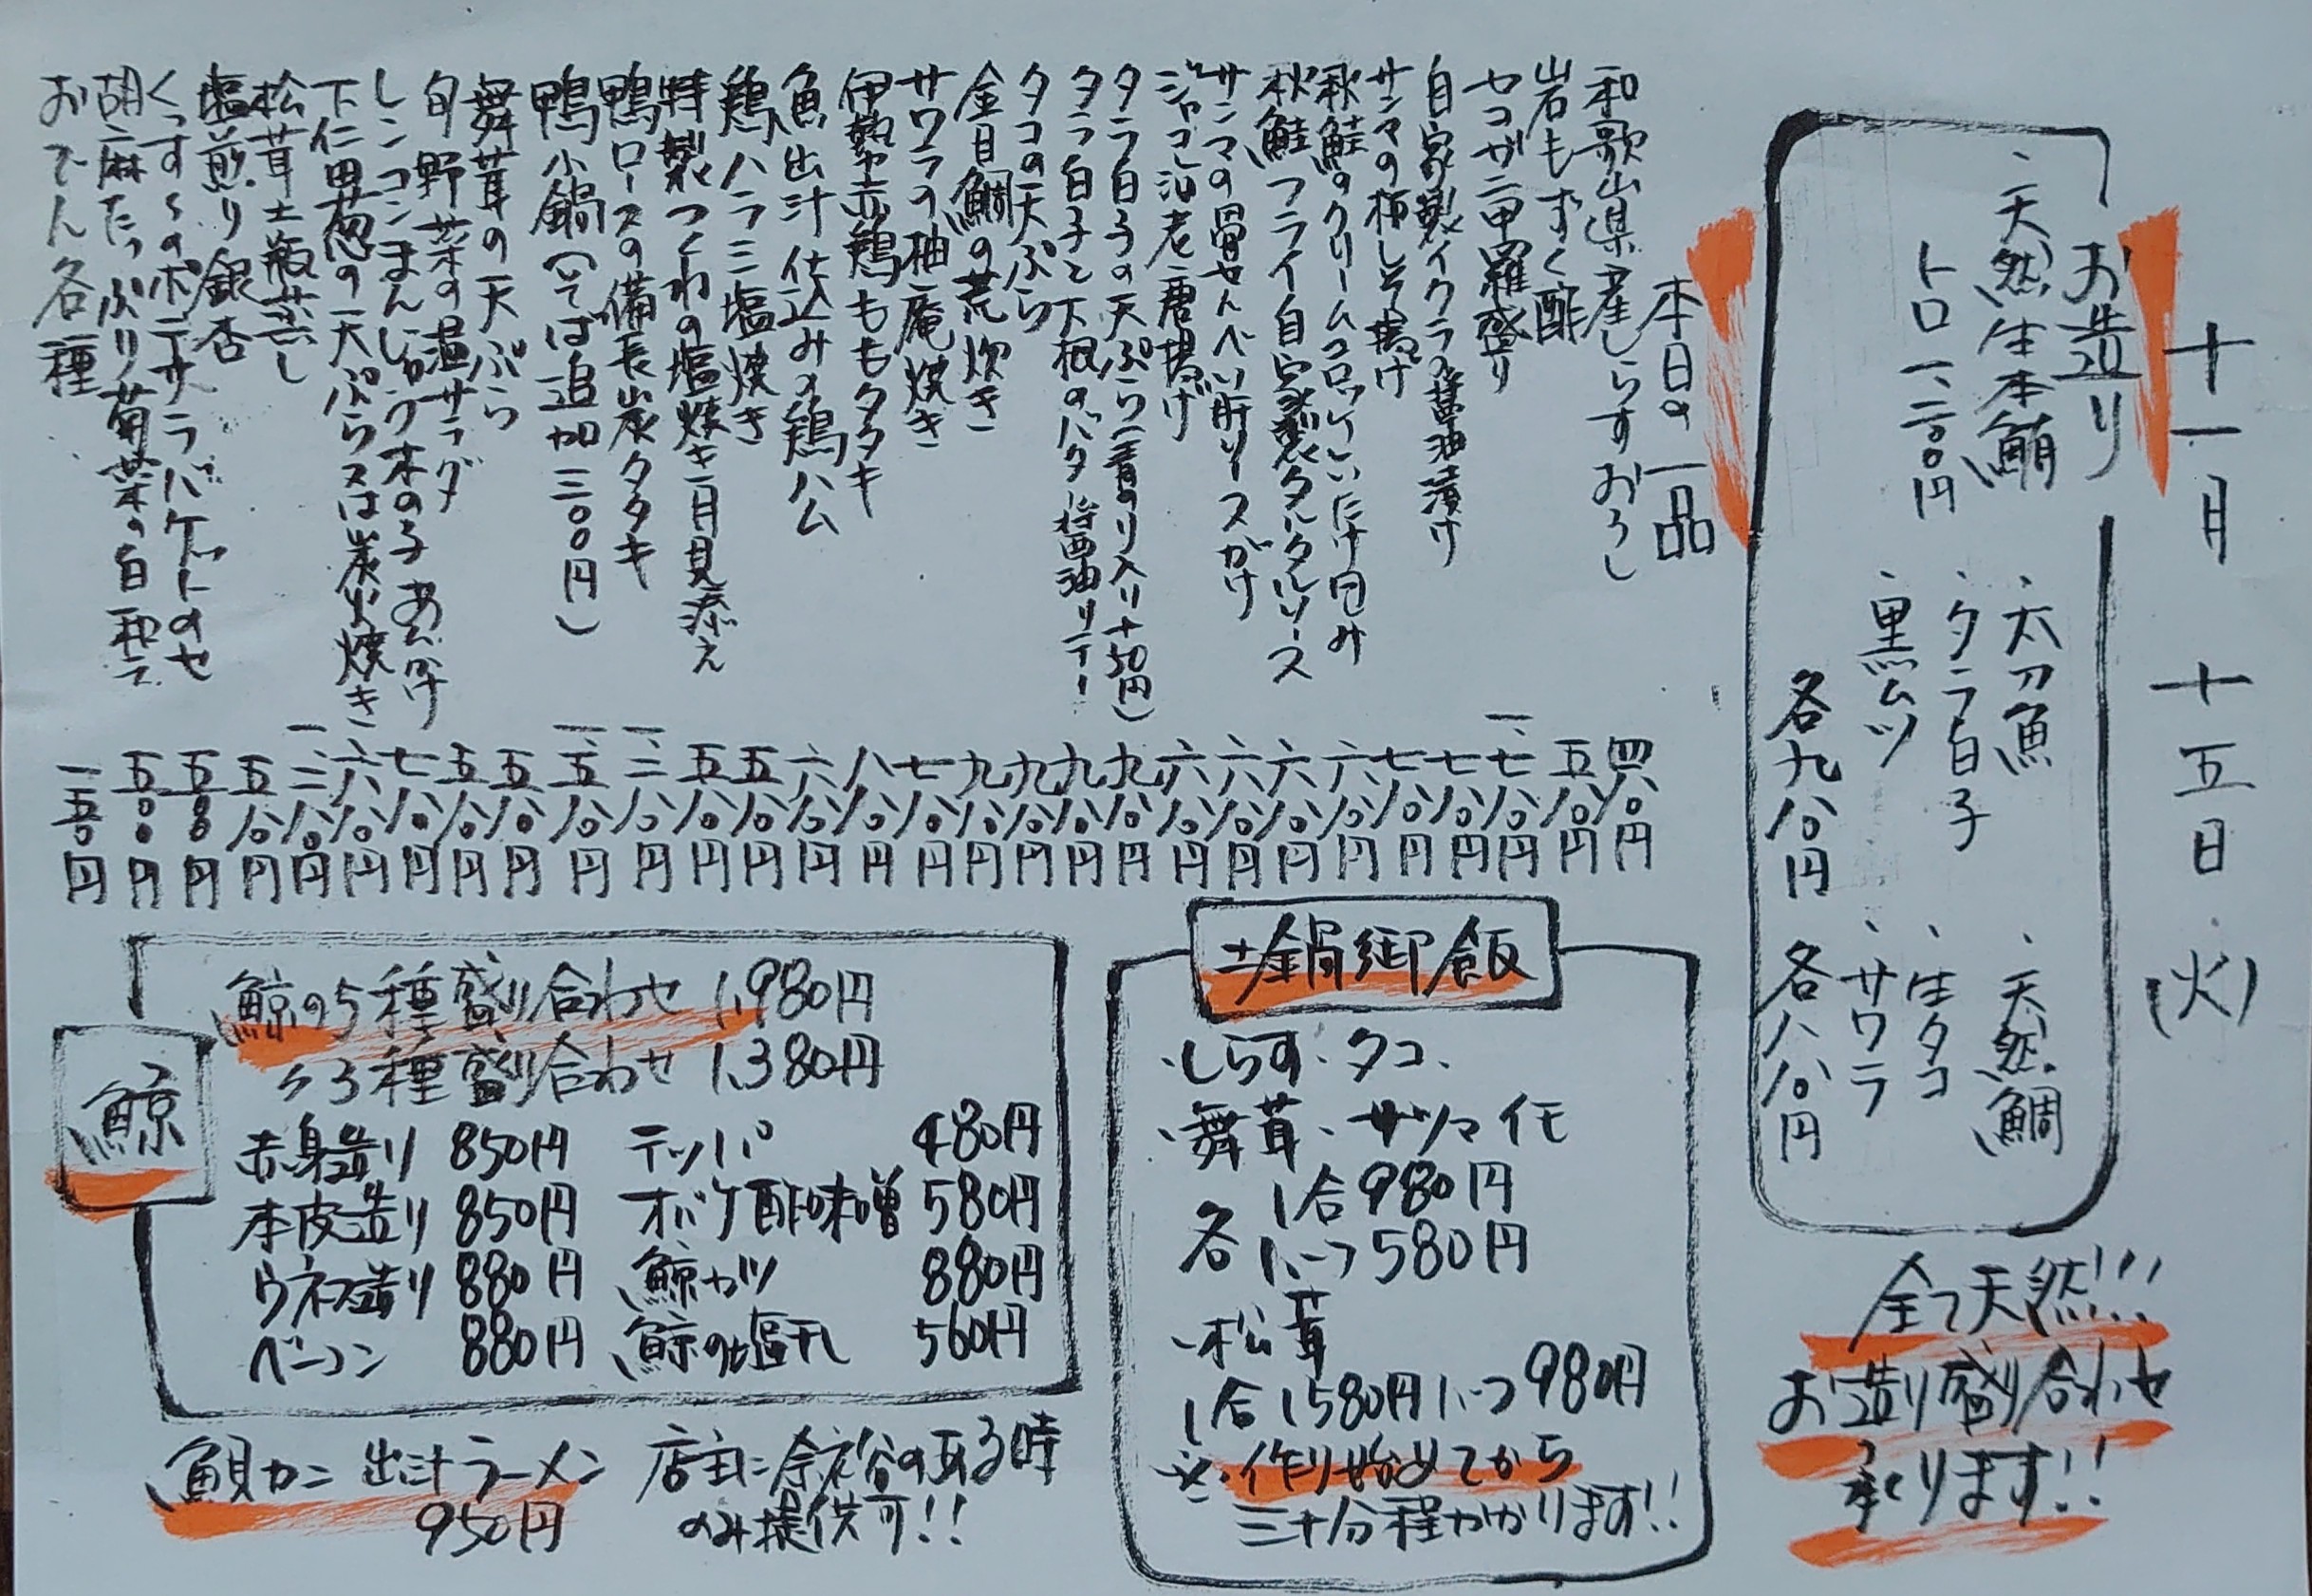 十一月 十五日(火)
お造り
、天然生本鮪
トロ一、二〇〇円
、太刀魚
、タラ白子
、黒ムツ
各九八〇円
、天然鯛
、生タコ
、サワラ
各八八〇円
全て天然!!!
お造り盛り合わせ
承ります!!
本日の一品
和歌山県産しらすおろし 四八〇円
岩もずく酢 五八〇円
セコガニ甲羅盛り 一、七八〇円
自家製イクラの醤油漬け 七八〇円
サンマの梅しそ揚げ 七八〇円
秋鮭のクリームコロッケしいたけ包み 六八〇円
秋鮭フライ自家製タルタルソース 六八〇円
サンマの骨せんべい肝ソースがけ 六八〇円
ジャコと海老唐揚げ 六八〇円
タラ白子の天ぷら(青のり入り+50円) 九八〇円
タラ白子と下根のバター醤油ソテー 九八〇円
タコの天ぷら 九八〇円
金目鯛の荒炊き 九八〇円
サワラの柚庵焼き 七八〇円
伊勢赤鶏ももタタキ 八八〇円
魚出汁仕込みの鶏ハム 六八〇円
鶏ハラミ塩焼き 五八〇円
特製つくねの塩焼き月見添え 五八〇円
鴨ロースの備長炭タタキ 一、二八〇円
鴨小鍋(そば追加三〇〇円) 一、五八〇円
舞茸の天ぷら 五八〇円
旬野菜の温サラダ 五八〇円
レンコンまんじゅう木の子あんかけ 七八〇円
下仁田葱の天ぷら又は炭火焼き 六八〇円
松茸土瓶蒸し 一、二八〇円
塩煎り銀杏 五八〇円
くっすんのポテサラバケットのせ 五五〇円
胡麻たっぷり菊菜の白和え 五〇〇円
おでん各種 一五〇円
土鍋御飯
、しらす、タコ、
、舞茸、サツマイモ
各 1合980円
1/2つ580円
、松茸
1合1580円1/2つ980円
※、作り始めてから
三十分程かかります!!
鯨
鯨の5種盛り合わせ 1,980円
〃3種盛り合わせ 1,380円
赤身造り 850円 テッパ 480円
本皮造り 850円 オバケ酢味噌 580円
ウネス造り 880円 鯨カツ 880円
ベーコン 880円 鯨の塩干し 560円
魚貝カニ 出汁ラーメン
950円
店主に余裕のある時
のみ提供可!!